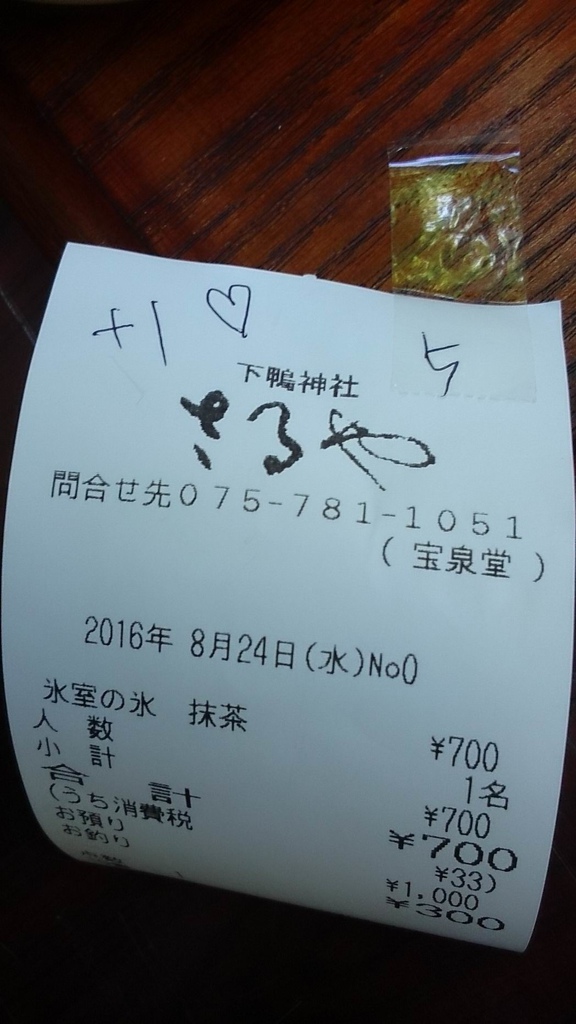 +1 ♡
ち
下鴨神社
さるや
問合せ先075-781-1051
(宝泉堂)
2016年 8月24日(水)No0
氷室の氷 抹茶 ¥700
人数 1名
小計 ¥700
合計 ¥700
(うち消費税 ¥33)
お預り ¥1,000
お釣り ¥300